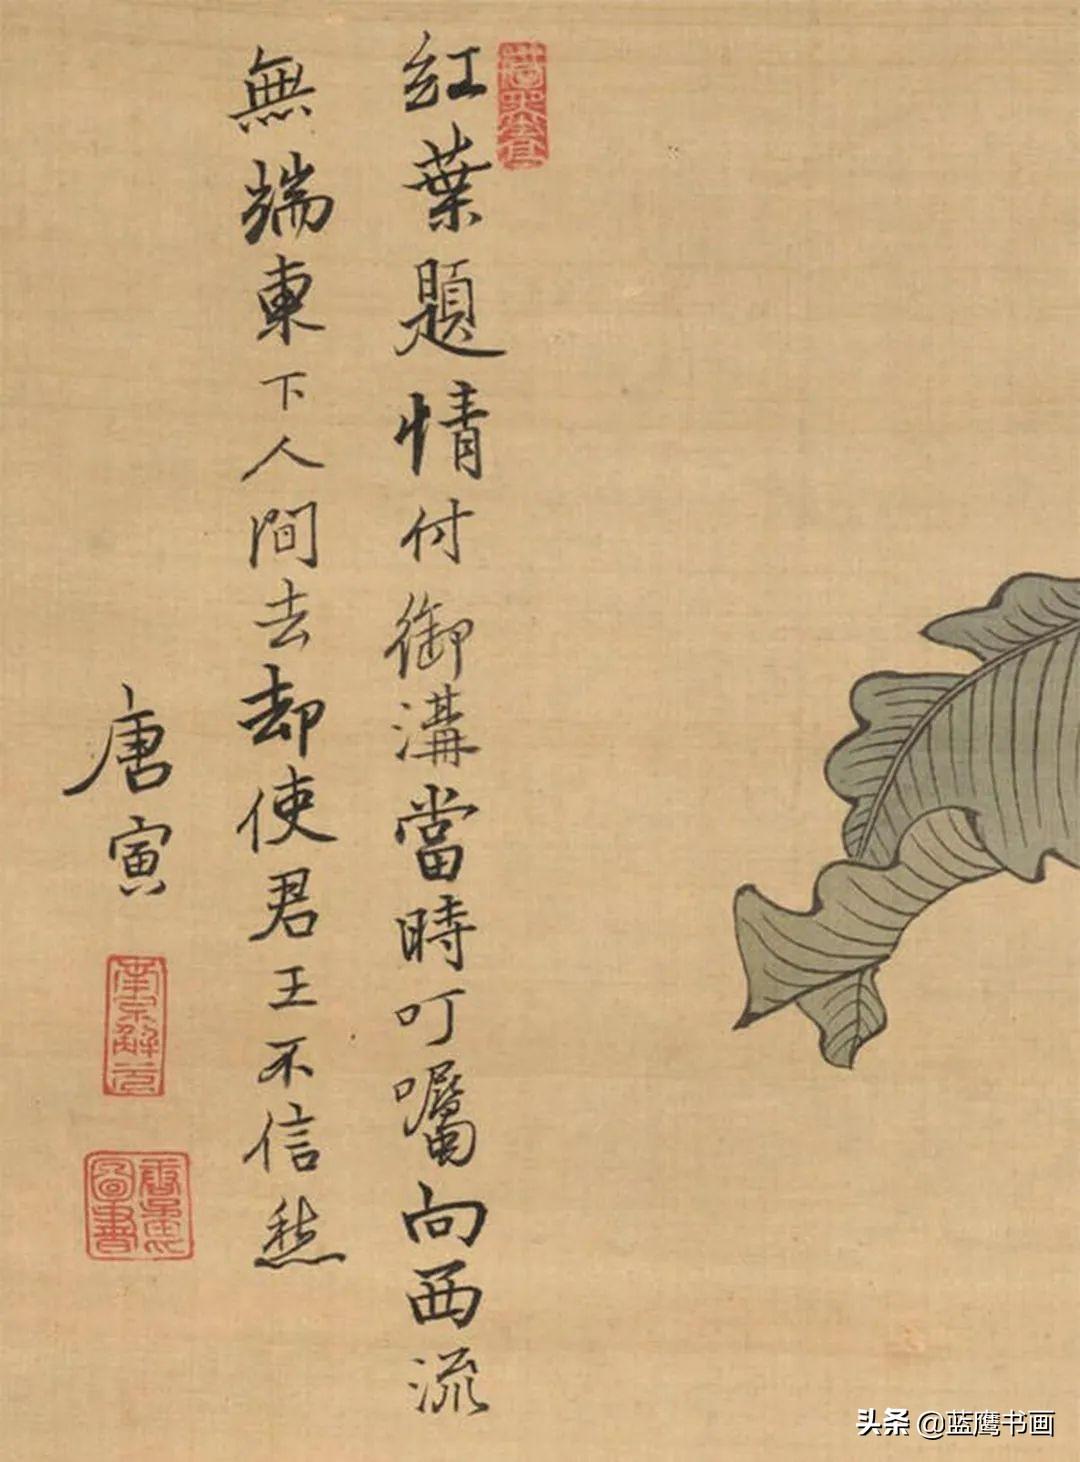 紅葉題情付御溝當時叮囑向西流
無端東下人間去却使君王不信愁
唐寅
南京解元
唐居士
圖書
头条 @蓝鹰书画